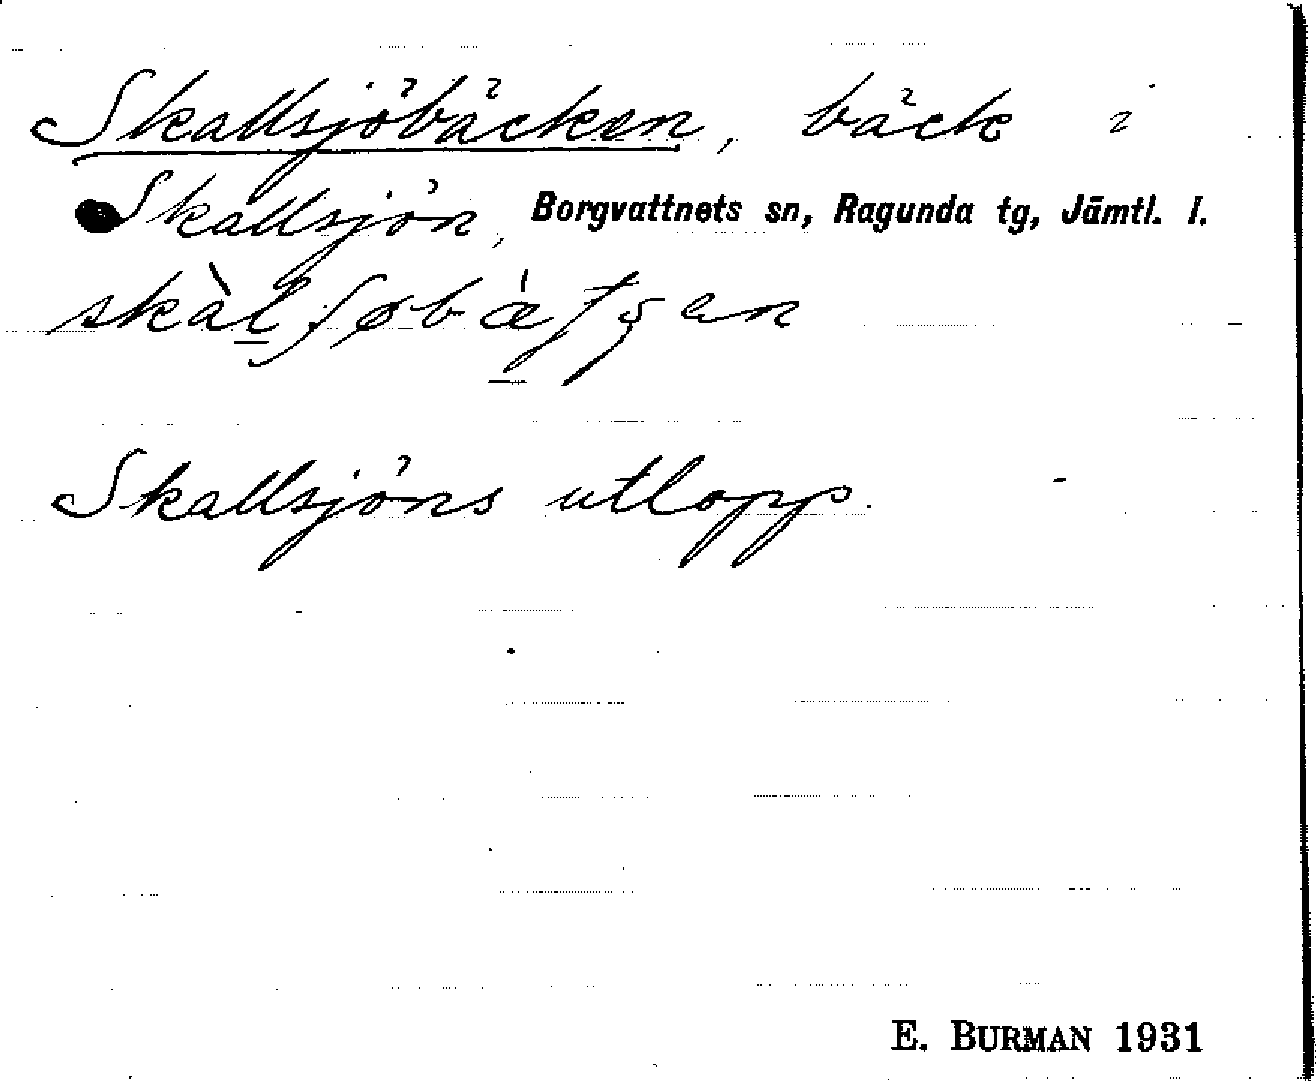 Skallsjöbäcken, bäck i
Skallsjön, Borgvattnets sn, Ragunda tg, Jämtl. l.
Skallsjöns utlopp.
E. BURMAN 1931